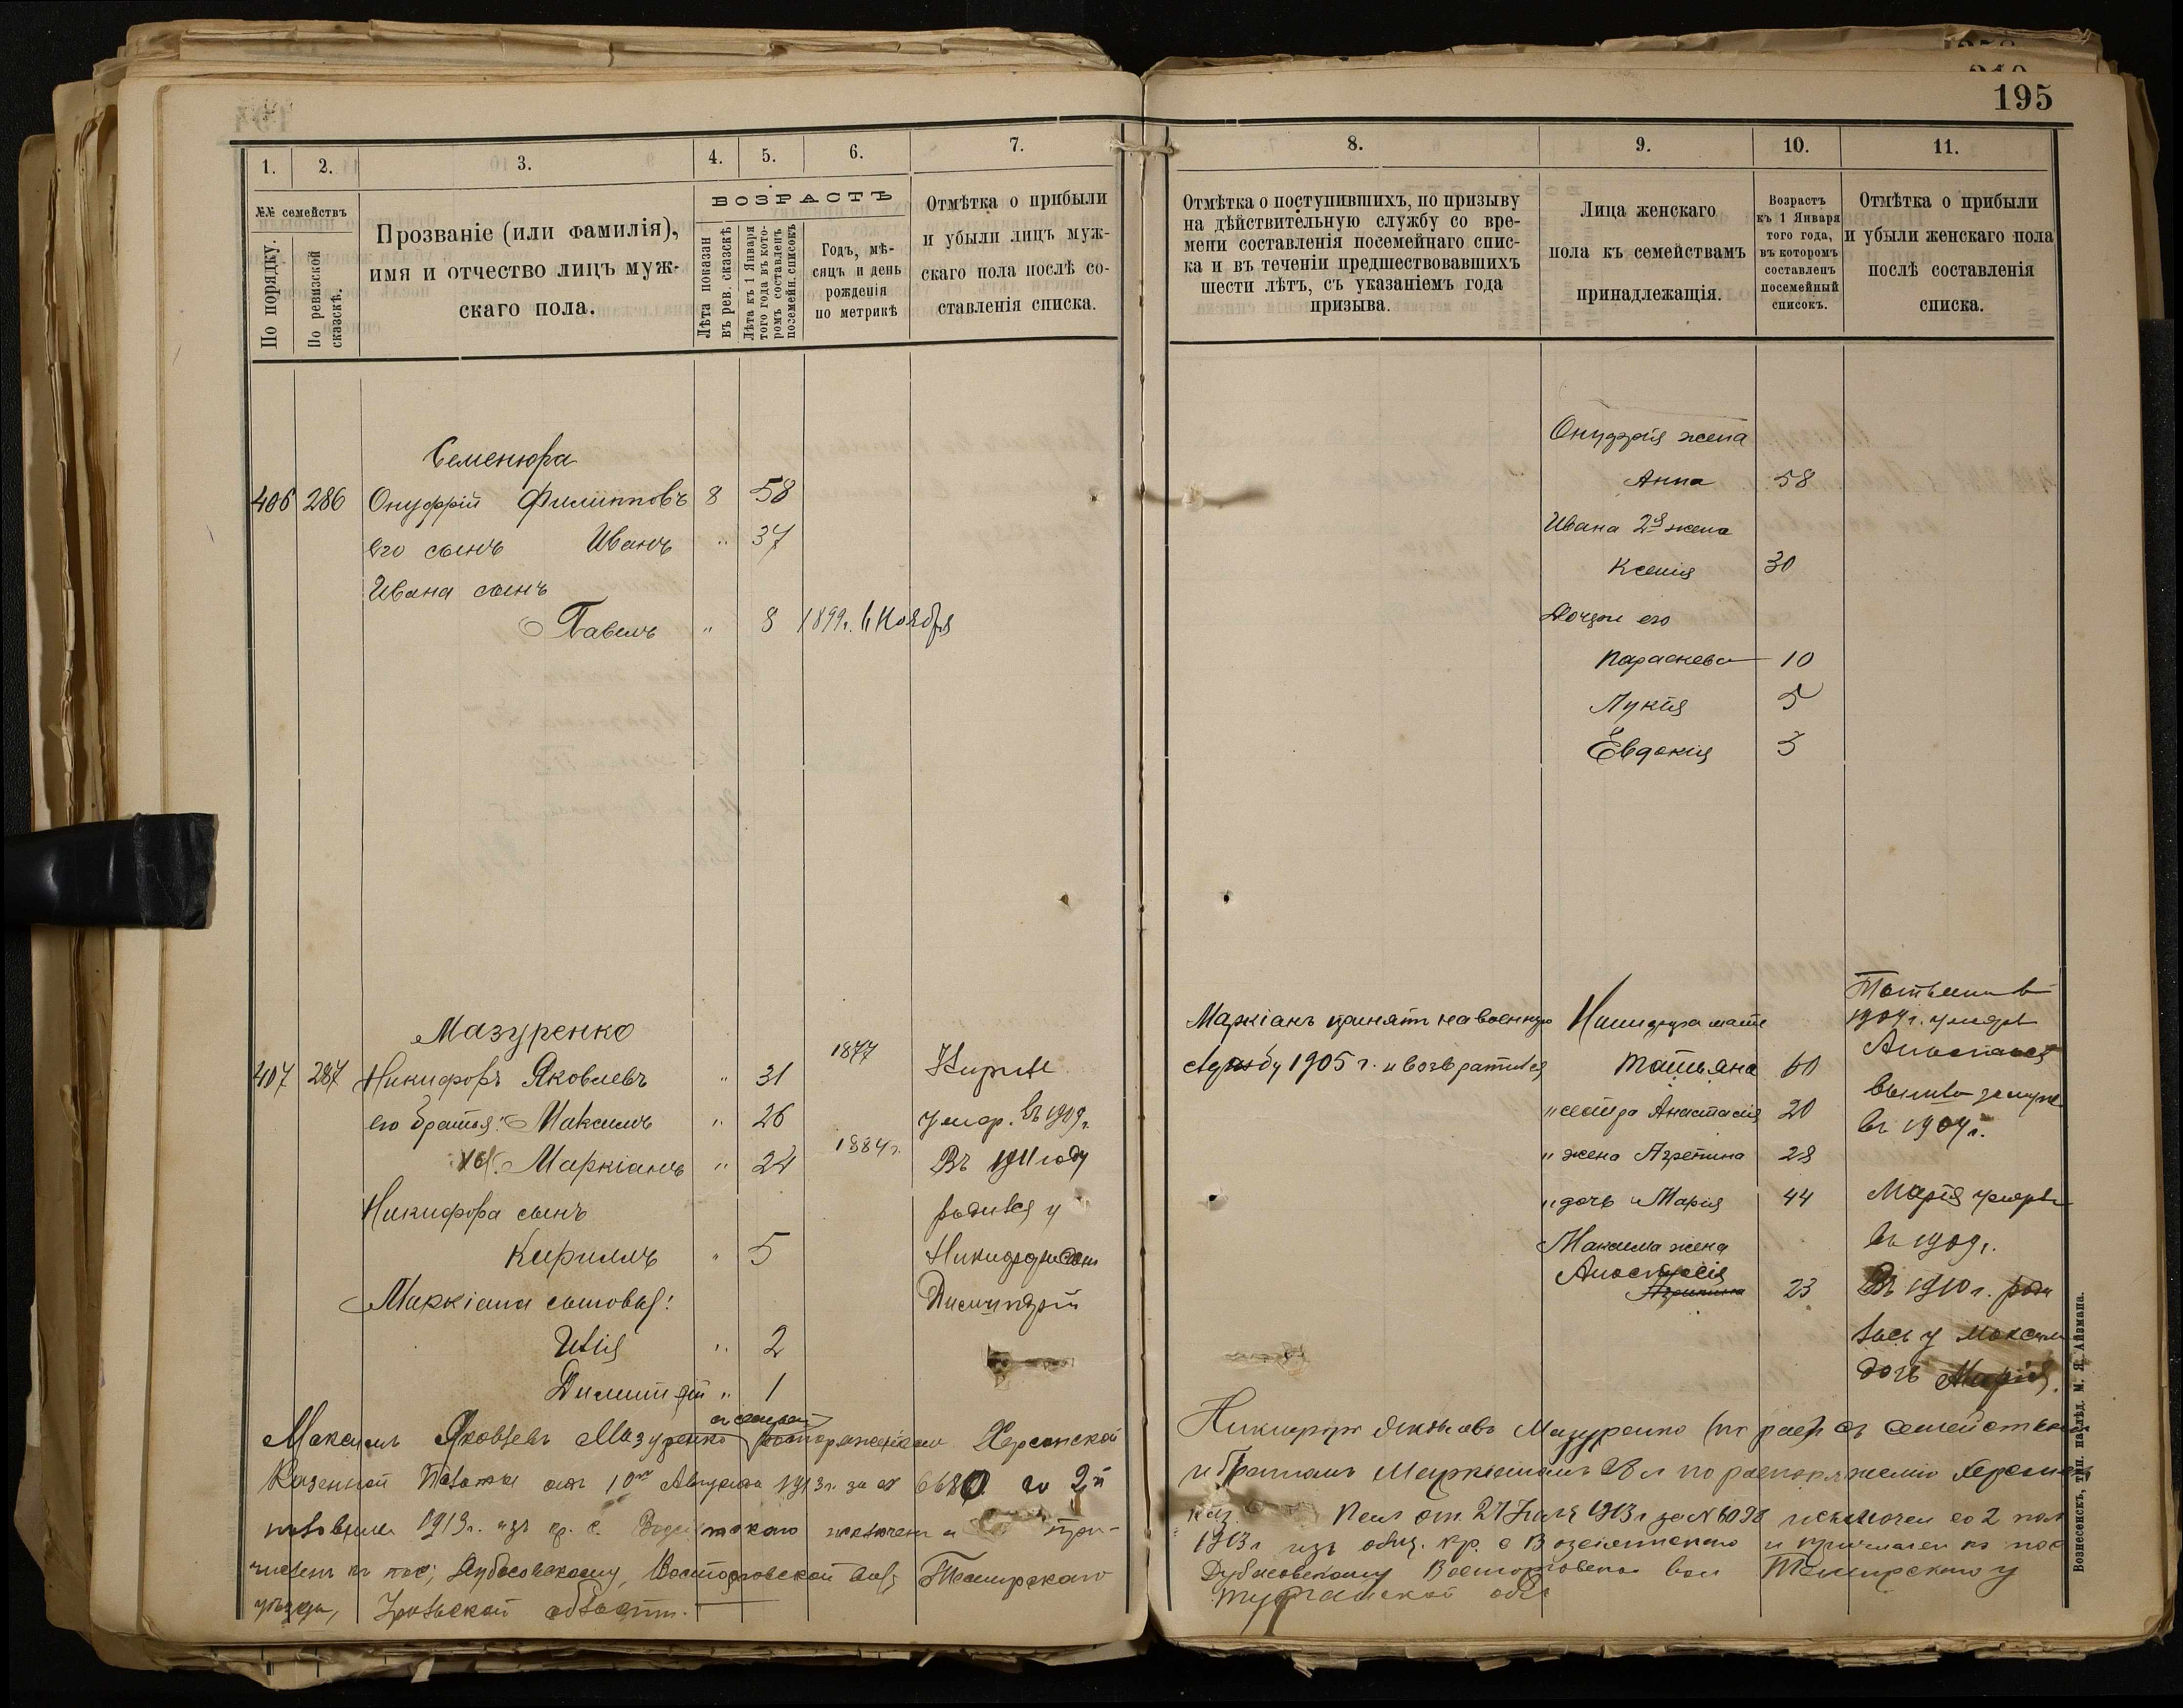 195
1.
2.
3.
4.
5.
6.
7.
№№ семействъ
По порядку.
По ревизской сказскѣ.
Прозваніе (или фамилія),
имя и отчество лицъ муж-
скаго пола.
ВОЗРАСТЪ
Лѣта показан
въ рев. сказскѣ
Лѣта къ 1 Января
того года въ кото-
ромъ составленъ
посемейн. списокъ
Годъ, мѣ-
сяцъ и день
рожденія
по метрикѣ
Отмѣтка о прибыли
и убыли лицъ муж-
скаго пола послѣ со-
ставленія списка.
Семенюра
406 286 Онуфрій Филипповъ 8 58
его сынъ Иванъ " 37
Ивана сынъ
Павелъ " 8 1899г. 6 Ноября
Мазуренко
407 287 Никифоръ Яковлевъ " 31 1877
его братья: Максимъ " 26 умер. въ 1909г.
Маркіанъ " 24 1884г. Въ 1911 году
Никифора сынъ родился у
Кирилъ " 5 Никифора сын
Маркіана сыновья: Димитрій
Илія " 2
Димитрій " 1
Максимъ Яковлевъ Мазуренко Херсонской
Казенной Палаты отъ 10го Августа 1913г. за № 6680 со 2й
половины 1913г. изъ кр. с. исключенъ и при-
численъ къ пос. Дубасовскому, Темирскаго
уѣзда, Уральской области.
8.
9.
10.
11.
Отмѣтка о поступившихъ, по призыву
на дѣйствительную службу со вре-
мени составленія посемейнаго спис-
ка и въ теченіи предшествовавшихъ
шести лѣтъ, съ указаніемъ года
призыва.
Лица женскаго
пола къ семействамъ
принадлежащія.
Возрастъ
къ 1 Января
того года,
въ которомъ
составленъ
посемейный
списокъ.
Отмѣтка о прибыли
и убыли женскаго пола
послѣ составленія
списка.
Онуфрія жена
Анна 58
Ивана 2я жена
Ксенія 30
Дочери его
Параскева 10
Лукія 5
Евдокія 3
Маркіанъ принятъ на военную
службу 1905 г. и возвратился
Никифора мать
Татьяна 60
" сестра Анастасія 20
" жена Агрепина 28
" дочь Марія 44
Максима жена
Анастасія
23
1909г. умерла
Анастасія
вышла замуж
въ 1909г.
Марія умерла
въ 1909г.
Въ 1910г. роди
лась у Максим
дочь Марія.
Никифоръ Яковлевъ Мазуренко съ семействомъ
и братомъ Маркіаномъ по распоряженію
Каз. от 27 Іюля 1913г за № исключен со 2 пол
1913г изъ общ. кр. с и причислен къ пос
Дубасовскому вол Темирскаго у
обл
Вознесенскъ, тип. наслѣд. М. Я. Айзмана.